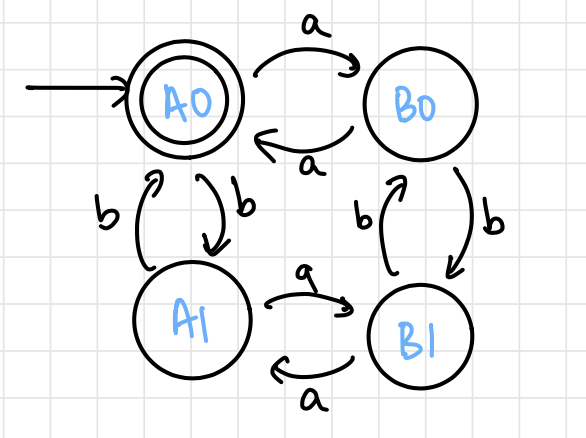 a
A0 B0
a
b b b b
a
A1 B1
a